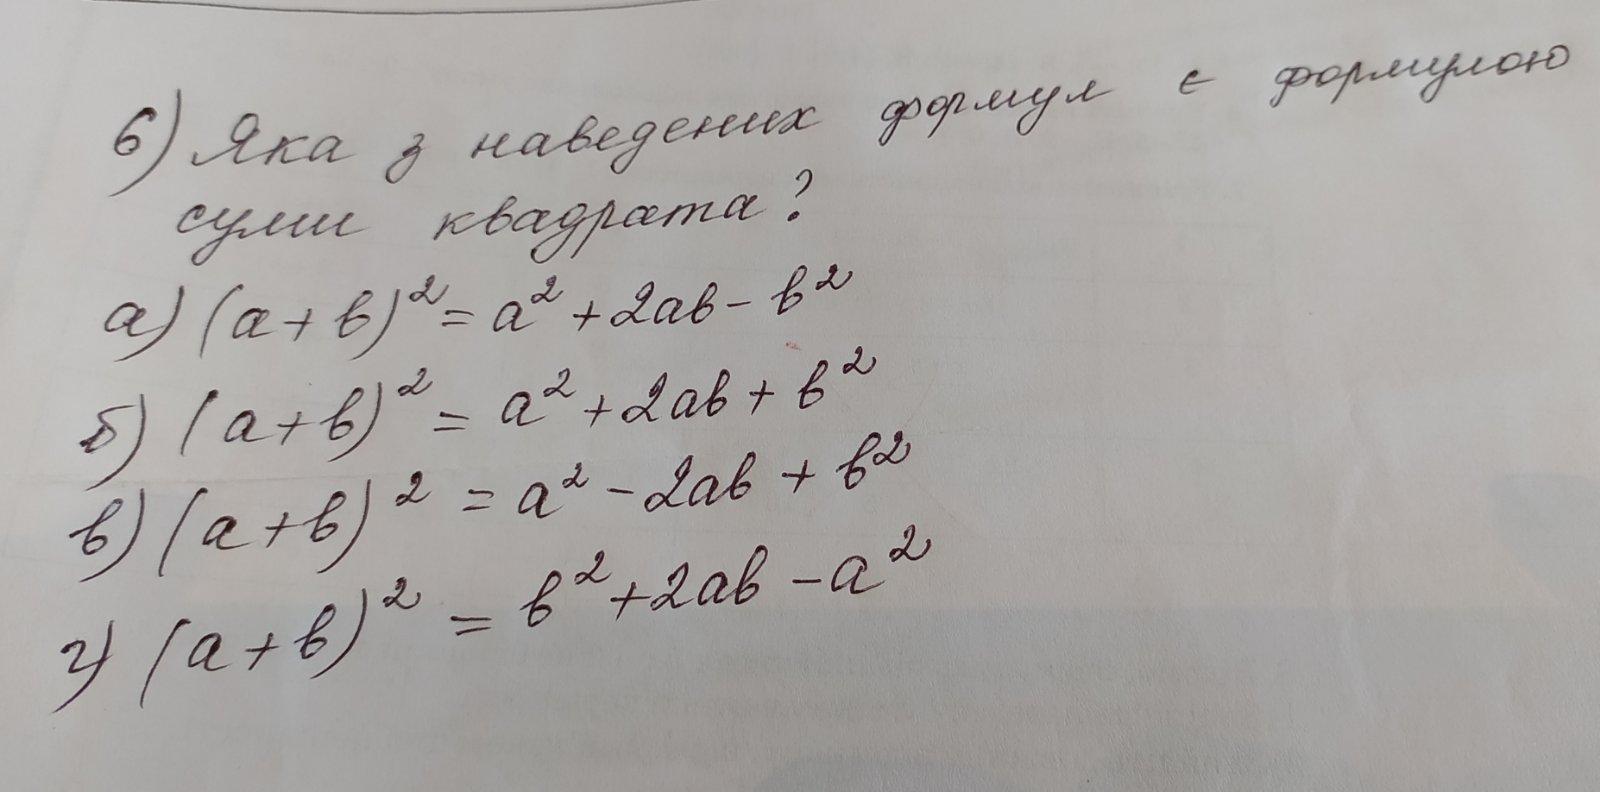 6) Яка з наведених формул є формулою
суми квадрата?
а) (a+b)² = a² + 2ab - b²
б) (a+b)² = a² + 2ab + b²
в) (a+b)² = a² - 2ab + b²
г) (a+b)² = b² + 2ab - a²